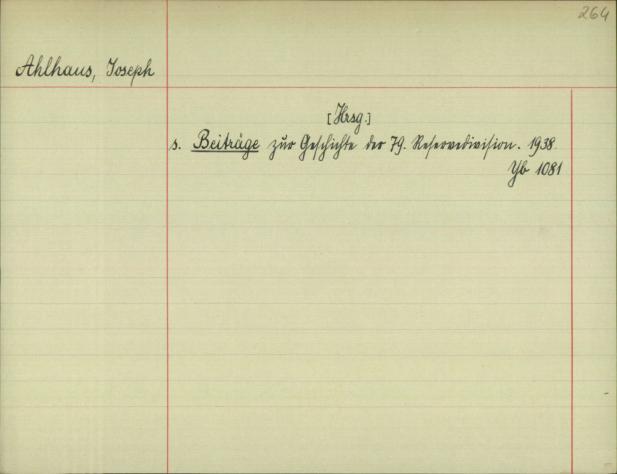 264
Ahlhaus, Joseph
[Hrsg.]
s. Beiträge zur Geschichte der 79. Reservedivision. 1938.
Yb 1081